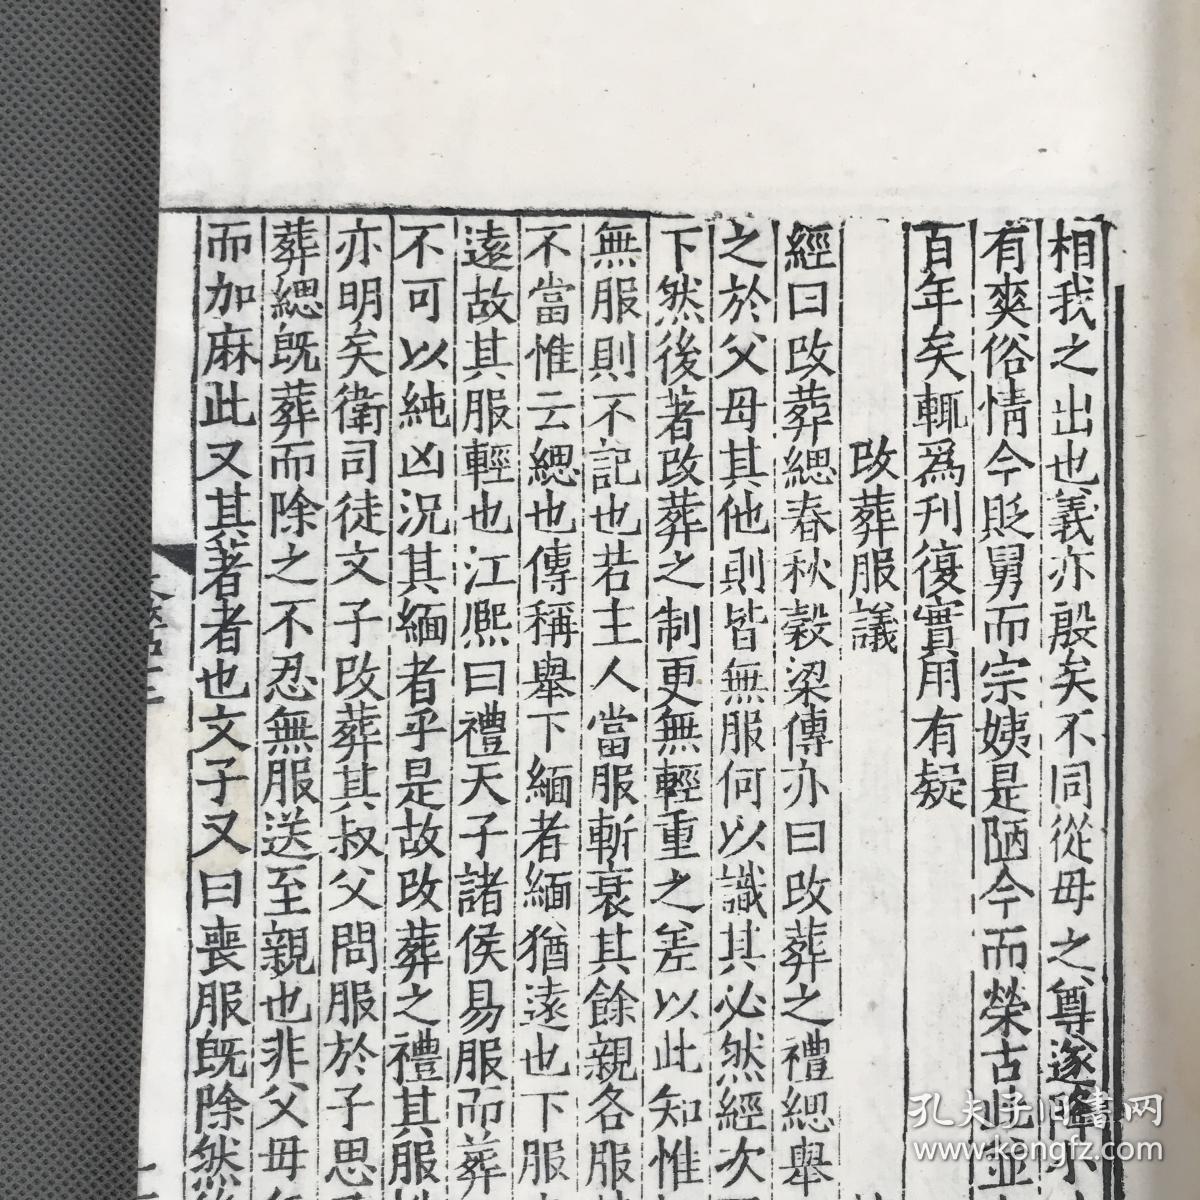 相我之出也義亦殷矣不同從母之尊遂降小
有爽俗情今貶舅而宗姨是陋今而榮古此並
百年矣輒爲刊復實用有疑
改葬服議
經曰改葬緦春秋穀梁傳亦曰改葬之禮緦舉
之於父母其他則皆無服何以識其必然經次
下然後著改葬之制更無輕重之差以此知惟
無服則不記也若主人當服斬衰其餘親各服
不當惟云緦也傳稱舉下緬者緬猶遠也下服
遠故其服輕也江熈曰禮天子諸侯易服而葬
不可以純凶況其緬者乎是故改葬之禮其服
亦明矣衛司徒文子改葬其叔父問服於子思
葬緦既葬而除之不忍無服送至親也非父母
而加麻此又其著者也文子又曰喪服既除然後
孔夫子旧書网
www.kongfz.com